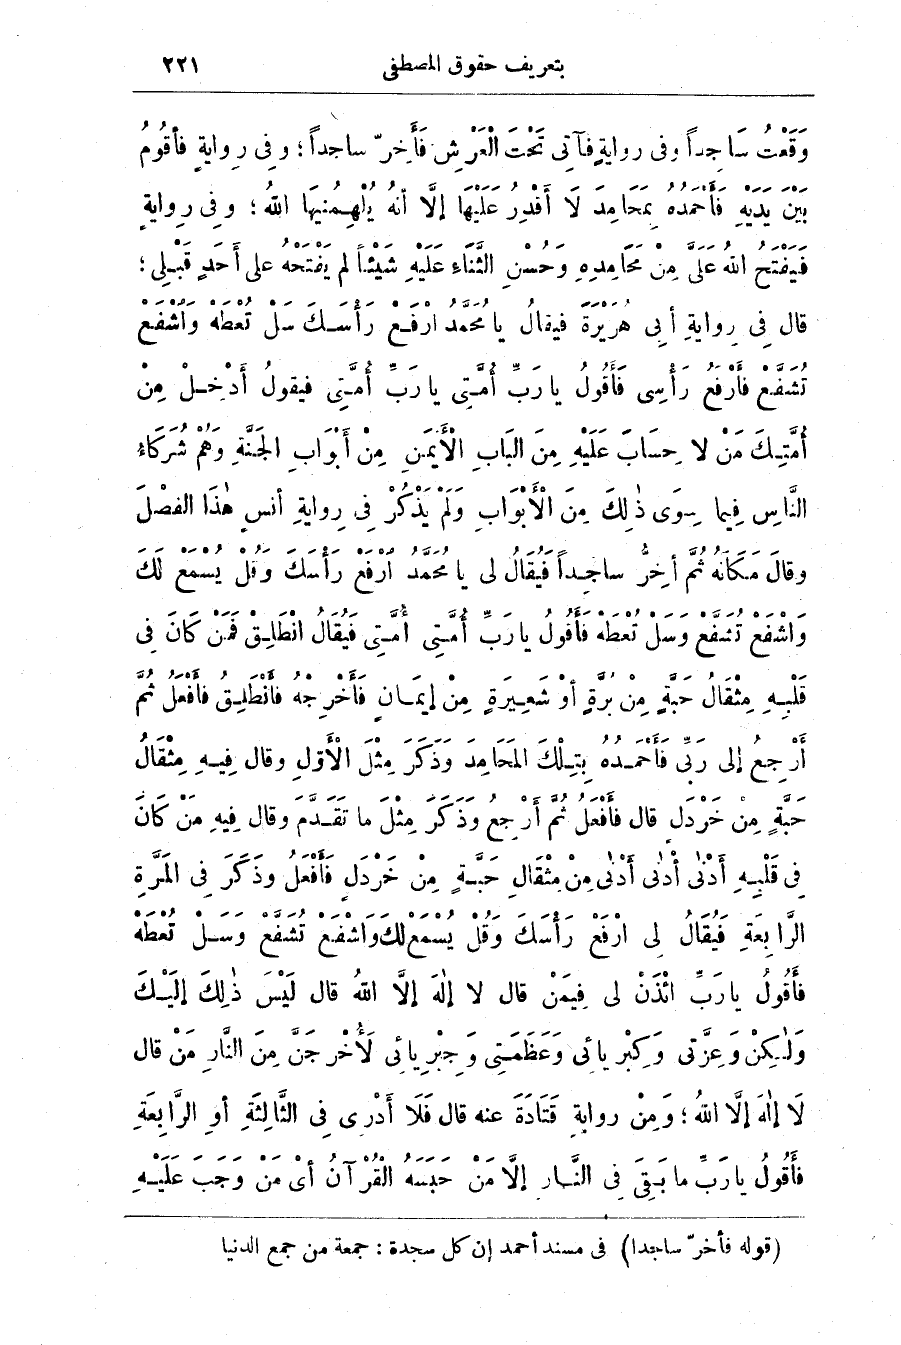 بتعريف حقوق المصطفى ٢٢١
وَقَعْتُ سَاجِداً وفى روايةٍ فَآتِى تَحْتَ الْعَرْشِ فَأَخِرّ ساجداً؛ وفى روايةٍ فأقُومُ
بَيْنَ يَدَيْهِ فَأَحْمَدُهُ بِمَحَامِدَ لَا أَقْدِرُ عَلَيْهَا إلَّا أنهُ يُلْهِمُنِيهَا اللهُ؛ وفى روايةٍ
فَيَفْتَحُ اللهُ عَلَىَّ مِنْ مَحَامِدِهِ وَحُسْنِ الثَّنَاءِ عَلَيْهِ شَيْئاً لم يَفْتَحْهُ على أَحَدٍ قَبْلِى؛
قال فِى روايةِ أبى هُرَيْرَةَ فيقالُ يا مُحَمَّدُ ارْفَعْ رَأْسَكَ سَلْ تُعْطَهْ وَاشْفَعْ
تُشَفَّعْ فأَرْفَعُ رَأْسِى فَأَقُولُ يا رَبِّ أُمَّتِى يا رَبِّ أُمَّتِى فيقولُ أَدْخِلْ مِنْ
أُمَّتِكَ مَنْ لا حِسَابَ عَلَيْهِ مِنَ البَابِ الْأَيْمَنِ مِنْ أَبْوَابِ الجَنَّةِ وَهُمْ شُرَكَاءُ
النَّاسِ فِيما سِوَى ذٰلِكَ مِنَ الْأَبْوَابِ وَلَمْ يَذْكُرْ فِى روايةِ أنسٍ هٰذَا الفصْلَ
وقالَ مَكَانَهُ ثُمَّ أخِرُّ ساجِداً فَيُقَالُ لى يا مُحَمَّدُ ارْفَعْ رَأْسَكَ وَقُلْ يُسْمَعْ لَكَ
وَاشْفَعْ تُشَفَّعْ وَسَلْ تُعْطَهْ فَأَقُولُ يا رَبِّ أُمَّتِى أُمَّتِى فَيُقَالُ انْطَلِقْ فَمَنْ كَانَ فِى
قَلْبِهِ مِثْقَالُ حَبَّةٍ مِنْ بُرَّةٍ أَوْ شَعِيرَةٍ مِنْ إيمَانٍ فَأَخْرِجْهُ فَأَنْطَلِقُ فَأَفْعَلُ ثُمَّ
أَرْجِعُ إلى رَبِّى فَأَحْمَدُهُ بِتِلْكَ المَحَامِدَ وَذَكَرَ مِثْلَ الْأَوّلِ وقال فِيهِ مِثْقَالُ
حَبَّةٍ مِنْ خَرْدَلٍ قال فَأَفْعَلُ ثُمَّ أَرْجِعُ وَذَكَرَ مِثْلَ ما تَقَدَّمَ وقال فِيهِ مَنْ كَانَ
فِى قَلْبِهِ أَدْنٰى أَدْنٰى أَدْنٰى مِنْ مِثْقَالِ حَبَّةٍ مِنْ خَرْدَلٍ فَأَفْعَلُ وذَكَرَ فى المَرَّةِ
الرَّابِعَةِ فَيُقَالُ لِى ارْفَعْ رَأْسَكَ وَقُلْ يُسْمَعْ لك وَاشْفَعْ تُشَفَّعْ وَسَلْ تُعْطَهْ
فَأَقُولُ يا رَبِّ ائْذَنْ لى فِيمَنْ قال لا إلٰهَ إلَّا اللهُ قال لَيْسَ ذٰلِكَ إلَيْكَ
وَلٰكِنْ وَعِزَّتِى وَكِبْرِيائى وَعَظَمَتِى وَجِبْرِيائى لَأُخْرِجَنَّ مِنَ النَّارِ مَنْ قال
لَا إلٰهَ إلَّا اللهُ؛ وَمِنْ رواية قَتَادَةَ عنه قال فَلَا أَدْرِى فِى الثَّالِثَةِ أوِ الرَّابِعَةِ
فَأَقُولُ يا رَبِّ ما بَقِىَ فى النَّارِ إلَّا مَنْ حَبَسَهُ القُرْآنُ أىْ مَنْ وَجَبَ عَلَيْهِ
(قوله فأخرّ ساجدا) فى مسند أحمد إن كل سجدة : جمعة من جمع الدنيا